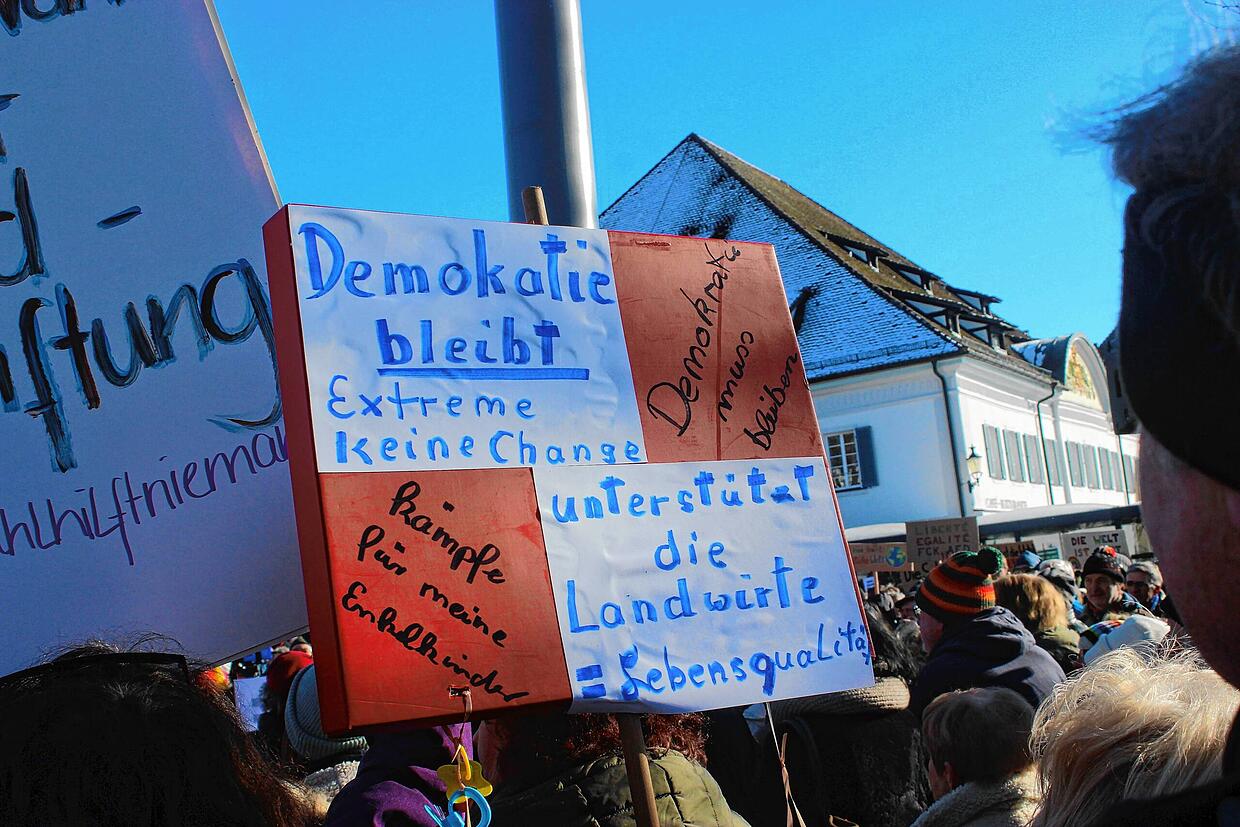 ftung
hlhilftnieman
Demokatie
bleibt
Extreme
keine Change
Demokratie
muss
bleiben
kämpfe
für meine
Enkelkinder
unterstützt
die
Landwirte
= Lebensqualität
LIBERTÉ
EGALITÉ
FCK AF
DIE WELT
IST